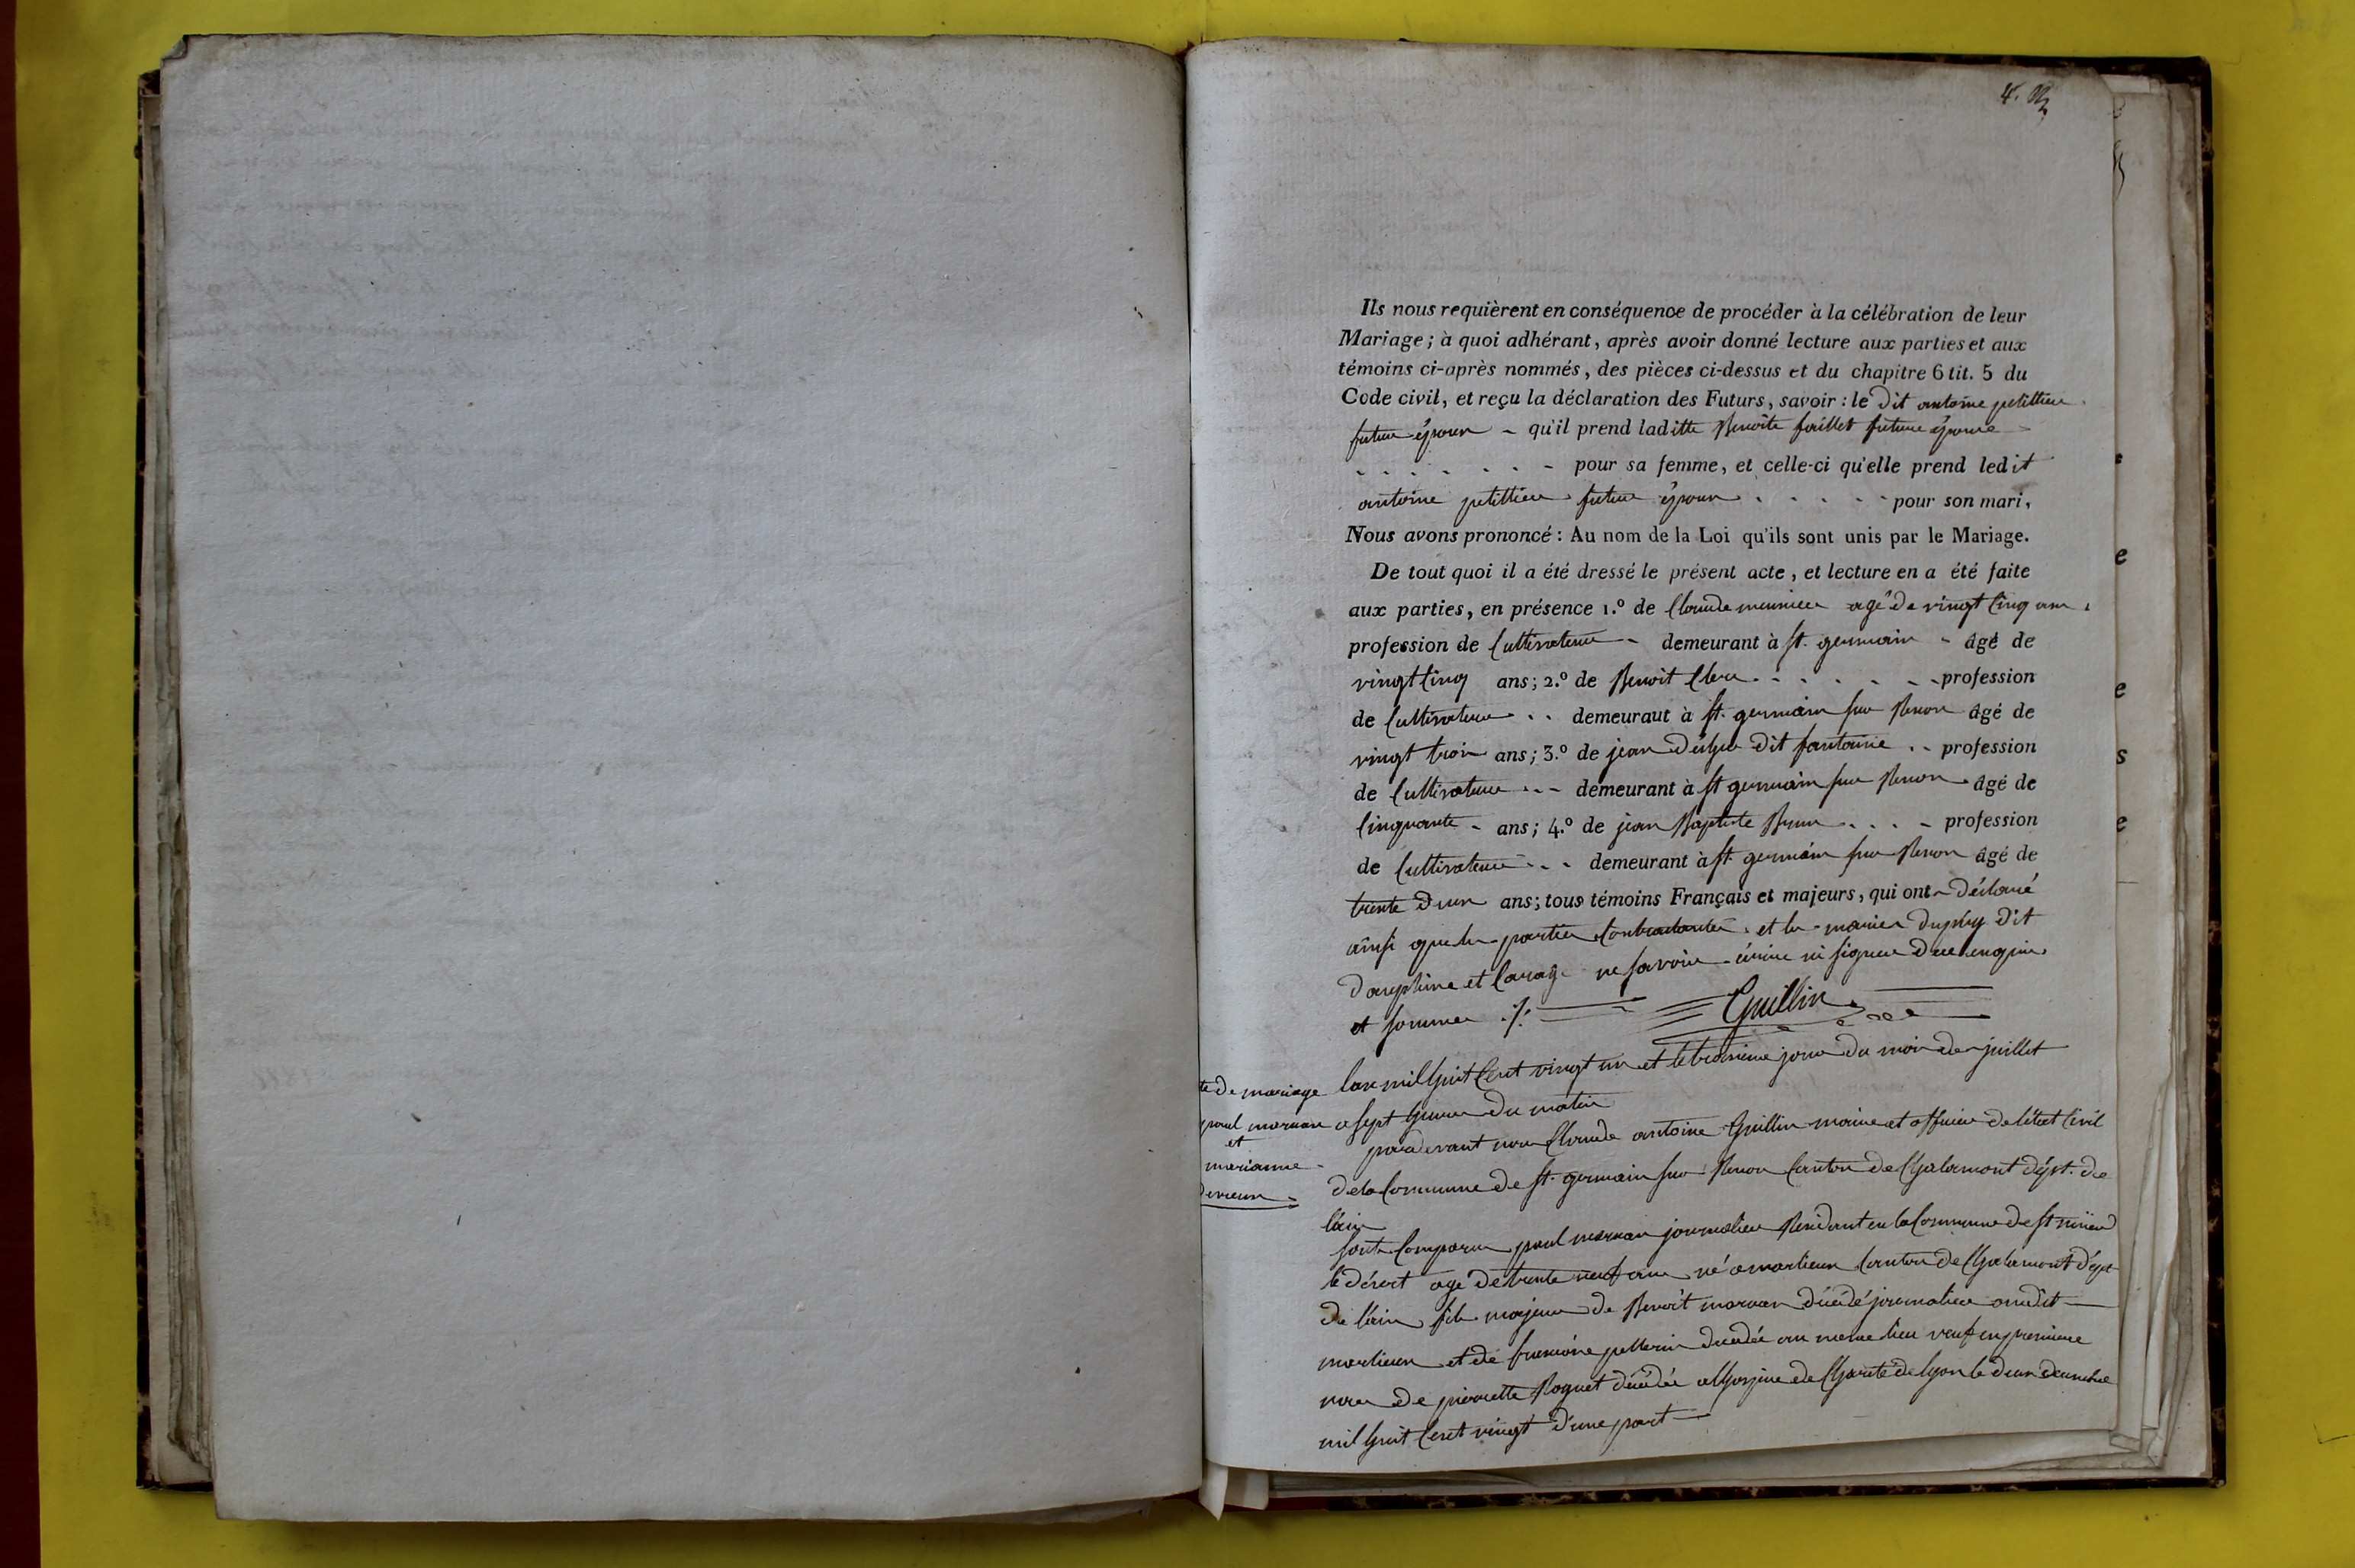 4.
Ils nous requièrent en conséquence de procéder à la célébration de leur
Mariage ; à quoi adhérant, après avoir donné lecture aux parties et aux
témoins ci-après nommés, des pièces ci-dessus et du chapitre 6 tit. 5 du
Code civil, et reçu la déclaration des Futurs, savoir : le dit antoine petittieu
futur époux - qu'il prend laditte Benoite faillet future épouse
pour sa femme, et celle-ci qu'elle prend ledit
antoine petittieu futur époux pour son mari,
Nous avons prononcé : Au nom de la Loi qu'ils sont unis par le Mariage.
De tout quoi il a été dressé le présent acte, et lecture en a été faite
aux parties, en présence 1.º de Claude meunier agé de vingt Cinq ans
profession de Cultivateur - demeurant à st. germain - âgé de
vingt Cinq ans ; 2.º de Benoit Clerc profession
de Cultivateur demeurant à st. germain sur Renon âgé de
vingt trois ans ; 3.º de jean dit fontaine profession
de Cultivateur demeurant à st germain sur Renon âgé de
Cinquante ans ; 4.º de jean Baptiste profession
de Cultivateur demeurant à st. germain sur Renon âgé de
trente d'eux ans ; tous témoins Français et majeurs, qui ont déclaré
ainsi que les parties Contractantes et les dit
ne savoir écrire ni signer Duement enquis
et sommes ./. Guillin
te De mariage
paul morvan
et
marianne
Devieux
Lan mil huit Cent vingt un et le troisieme jour du mois de juillet
a sept heures du matin
pardevant nous Claude antoine Guillin maire et officier de létat Civil
de la Commune de st. germain sur Renon Canton de Chalamont dépt. de
lain
sont Comparus paul morvan journalier Residant en la Commune de st nizier
le désert agé de trente neuf ans né a marlieux Canton de Chalamont dépt
de lain fils majeur de Benoit morvan décédé journalier audit
marlieux et de francoise pellerin décédée au meme lieu veuf en premiere
noces de pierrette Roguet décédée a lhospice de Charité de lyon le
mil huit Cent vingt d'une part